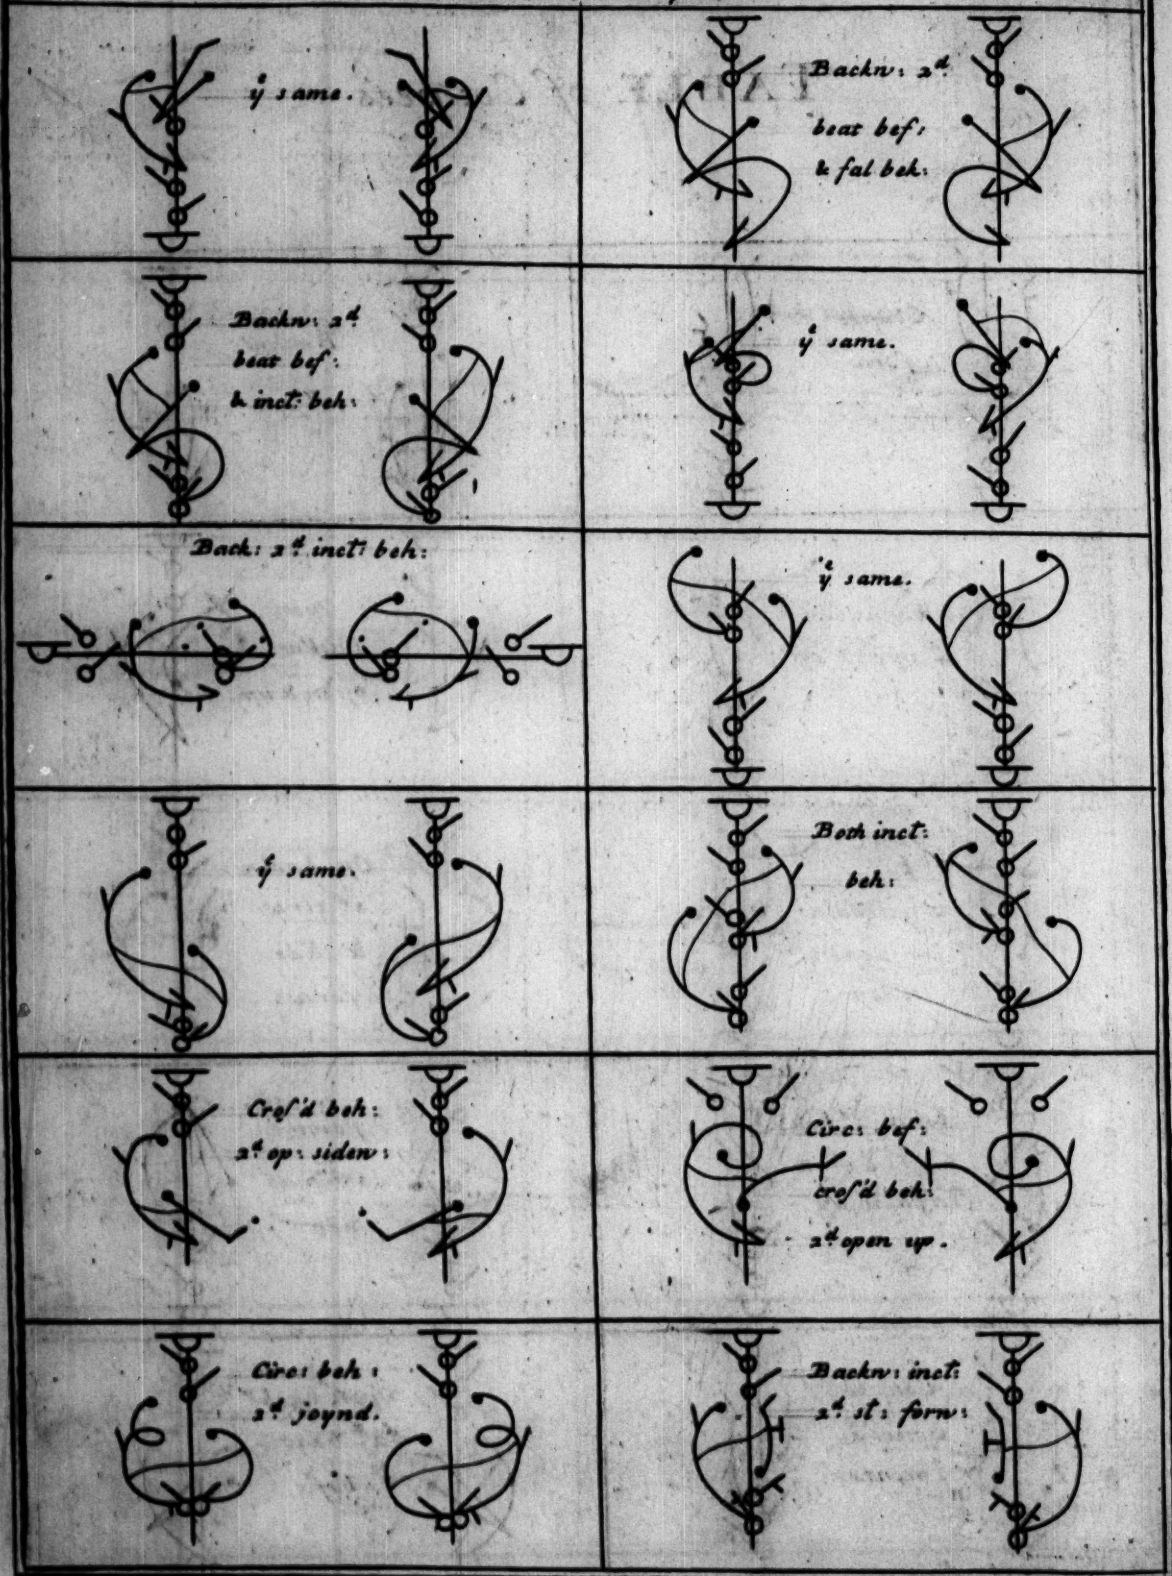 yͤ same.
Backw: 2ᵈ
beat bef:
& fal beh:
Backw: 2ᵈ
beat bef:
& inct: beh:
yͤ same.
Back: 2ᵈ inct: beh:
yͤ same.
yͤ same.
Both inct:
beh:
Croſ'd beh:
2ᵈ op: sidew:
Circ: bef:
croſ'd beh:
2ᵈ open up.
Circ: beh:
2ᵈ joynd.
Backw: inct:
2ᵈ st: forw: